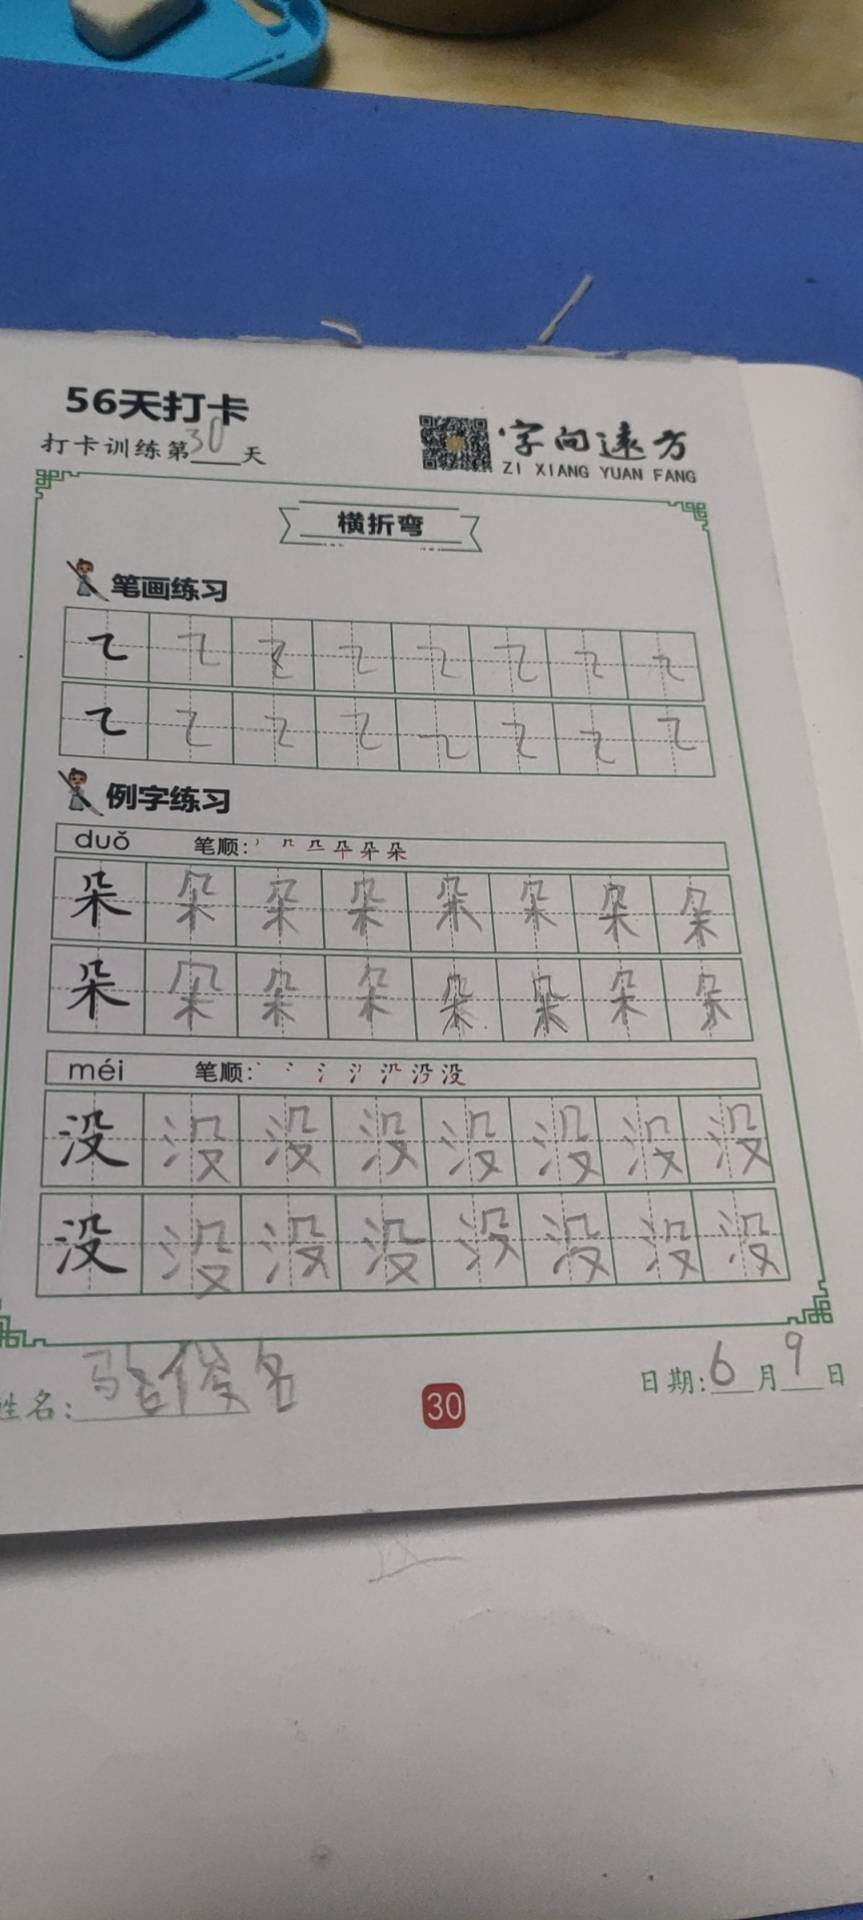 56天打卡
打卡训练第30天
字向远方
ZI XIANG YUAN FANG
横折弯
笔画练习
例字练习
duǒ 笔顺:
朵 朵 朵 朵 朵 朵 朵 朵
朵 朵 朵 朵 朵 朵 朵 朵
méi 笔顺:
没 没 没 没 没 没 没 没
没 没 没 没 没 没 没 没
姓名: 骆俊名
30
日期: 6月9日